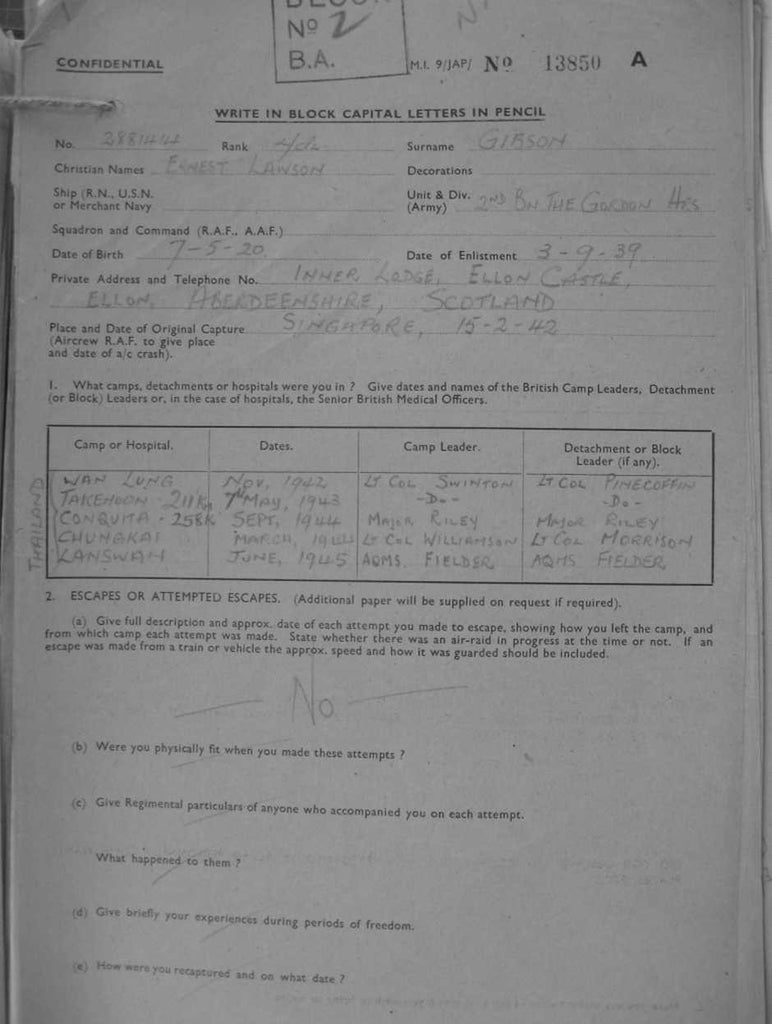 BLOCK
Nº 2
B.A.
CONFIDENTIAL
M.I. 9/JAP/ Nº 13850 A
WRITE IN BLOCK CAPITAL LETTERS IN PENCIL
No. 2881444 Rank Surname GIBSON
Christian Names ERNEST LAWSON Decorations
Ship (R.N., U.S.N. or Merchant Navy Unit & Div. (Army) 2ND BN THE GORDON HRS
Squadron and Command (R.A.F., A.A.F.)
Date of Birth 7-5-20 Date of Enlistment 3-9-39
Private Address and Telephone No. INNER LODGE, ELLON CASTLE,
ELLON, ABERDEENSHIRE, SCOTLAND
Place and Date of Original Capture SINGAPORE, 15-2-42
(Aircrew R.A.F. to give place
and date of a/c crash).
1. What camps, detachments or hospitals were you in ? Give dates and names of the British Camp Leaders, Detachment
(or Block) Leaders or, in the case of hospitals, the Senior British Medical Officers.
Camp or Hospital. Dates. Camp Leader. Detachment or Block Leader (if any).
THAILAND
WAN LUNG NOV, 1942 LT COL SWINTON LT COL PINECOFFIN
TAKENOON 211K MAY, 1943 -DO- -DO-
CONQUITA - 258K SEPT, 1944 MAJOR RILEY MAJOR RILEY
CHUNGKAI MARCH, 1944 LT COL WILLIAMSON LT COL MORRISON
KANSWAH JUNE, 1945 AQMS FIELDER AQMS FIELDER
2. ESCAPES OR ATTEMPTED ESCAPES. (Additional paper will be supplied on request if required).
(a) Give full description and approx. date of each attempt you made to escape, showing how you left the camp, and
from which camp each attempt was made. State whether there was an air-raid in progress at the time or not. If an
escape was made from a train or vehicle the approx. speed and how it was guarded should be included.
No
(b) Were you physically fit when you made these attempts ?
(c) Give Regimental particulars of anyone who accompanied you on each attempt.
What happened to them ?
(d) Give briefly your experiences during periods of freedom.
(e) How were you recaptured and on what date ?